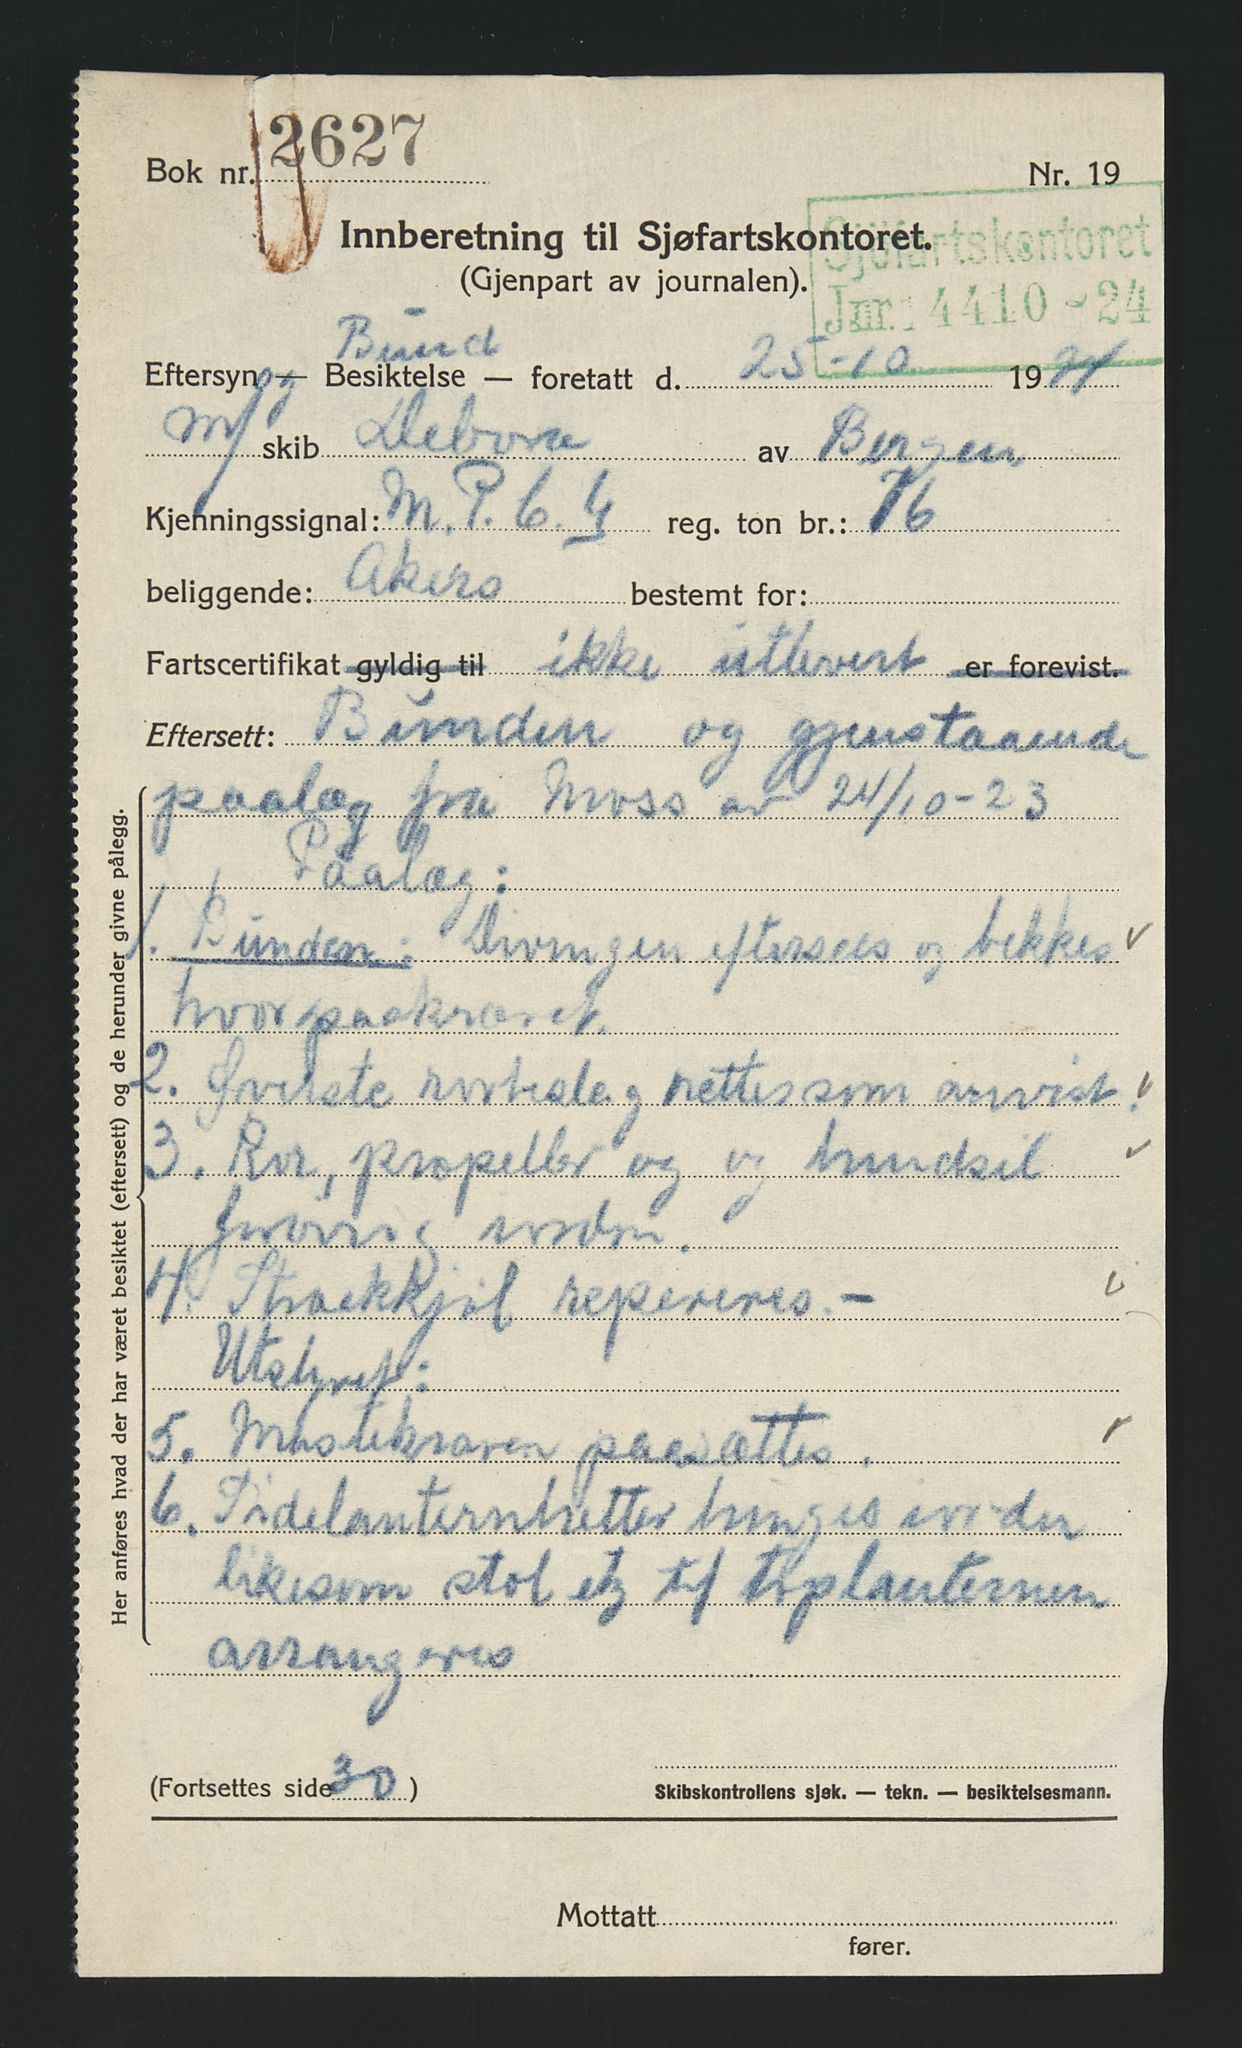 Bok nr. 2627
Nr. 19
Innberetning til Sjøfartskontoret.
(Gjenpart av journalen).
Sjöfartskontoret
Jnr.: 4410 - 24
Bund
Eftersyn og Besiktelse — foretatt d. 25-10 1924
m/ skib Debora av Bergen
Kjenningssignal: M. P. C. G reg. ton br.: 76
beliggende: Akers bestemt for:
Fartscertifikat gyldig til ikke utlevert er forevist.
Eftersett: Bunden og gjenstaaende
paalæg fra Moss av 24/10-23
Paalæg:
1. Bunden: Drivingen eftersees og bekkes
hvor paakrævet.
2. Øverste rorbeslag rettes som anvist.
3. Ror, propeller og og bundsil
forøvrig iorden.
4. Strækkjøl repereres.-
Utstyret:
5. Mastekraven paasættes.
6. Sidelanternbretter bringes iorden
likesom stol etz til toplanternen
arrangeres
Her anføres hvad der har været besiktet (eftersett) og de herunder givne pålegg.
(Fortsettes side 30)
Skibskontrollens sjøk. — tekn. — besiktelsesmann.
Mottatt
fører.